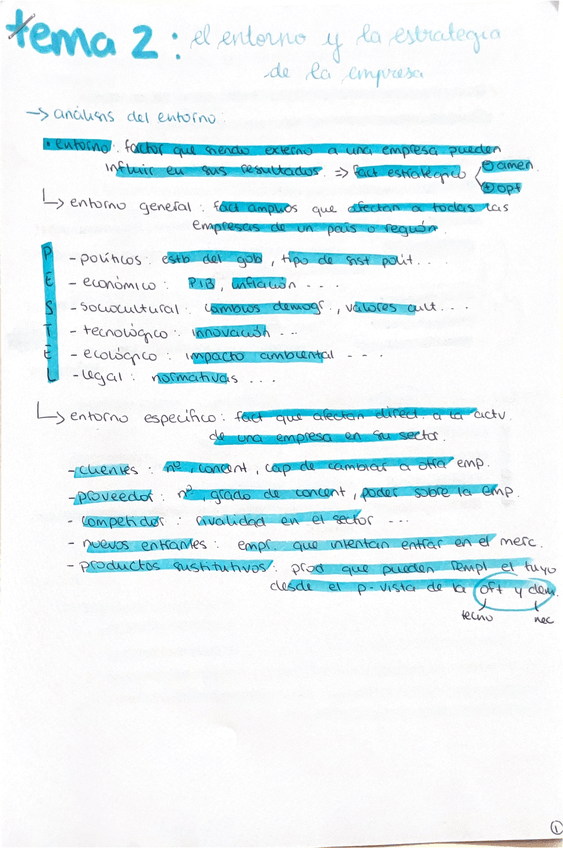 tema 2: el entorno y la estrategia
de la empresa
→ análisis del entorno:
• entorno: factor que siendo externo a una empresa pueden
influir en sus resultados. => fact estratégico < ⊖ amen.
⊕ opt
↳ entorno general: fact amplios que afectan a todas las
empresas de un país o región.
P - políticos: estb del gob, tipo de sist polit...
E - económico: PIB, inflación...
S - sociocultural: cambios demogr., valores cult...
T - tecnológico: innovación...
E - ecológico: impacto ambiental ...
L - legal: normativas...
↳ entorno específico: fact que afectan direct. a la actv.
de una empresa en su sector.
- clientes: nº, concent, cap de cambiar a otra emp.
- proveedor: nº, grado de concent, poder sobre la emp.
- competidor: rivalidad en el sector ...
- nuevos entrantes: empr. que intentan entrar en el merc.
- productos sustitutivos: prod que pueden rempl el tuyo
desde el p. vista de la oft y dem.
tecno nec
1